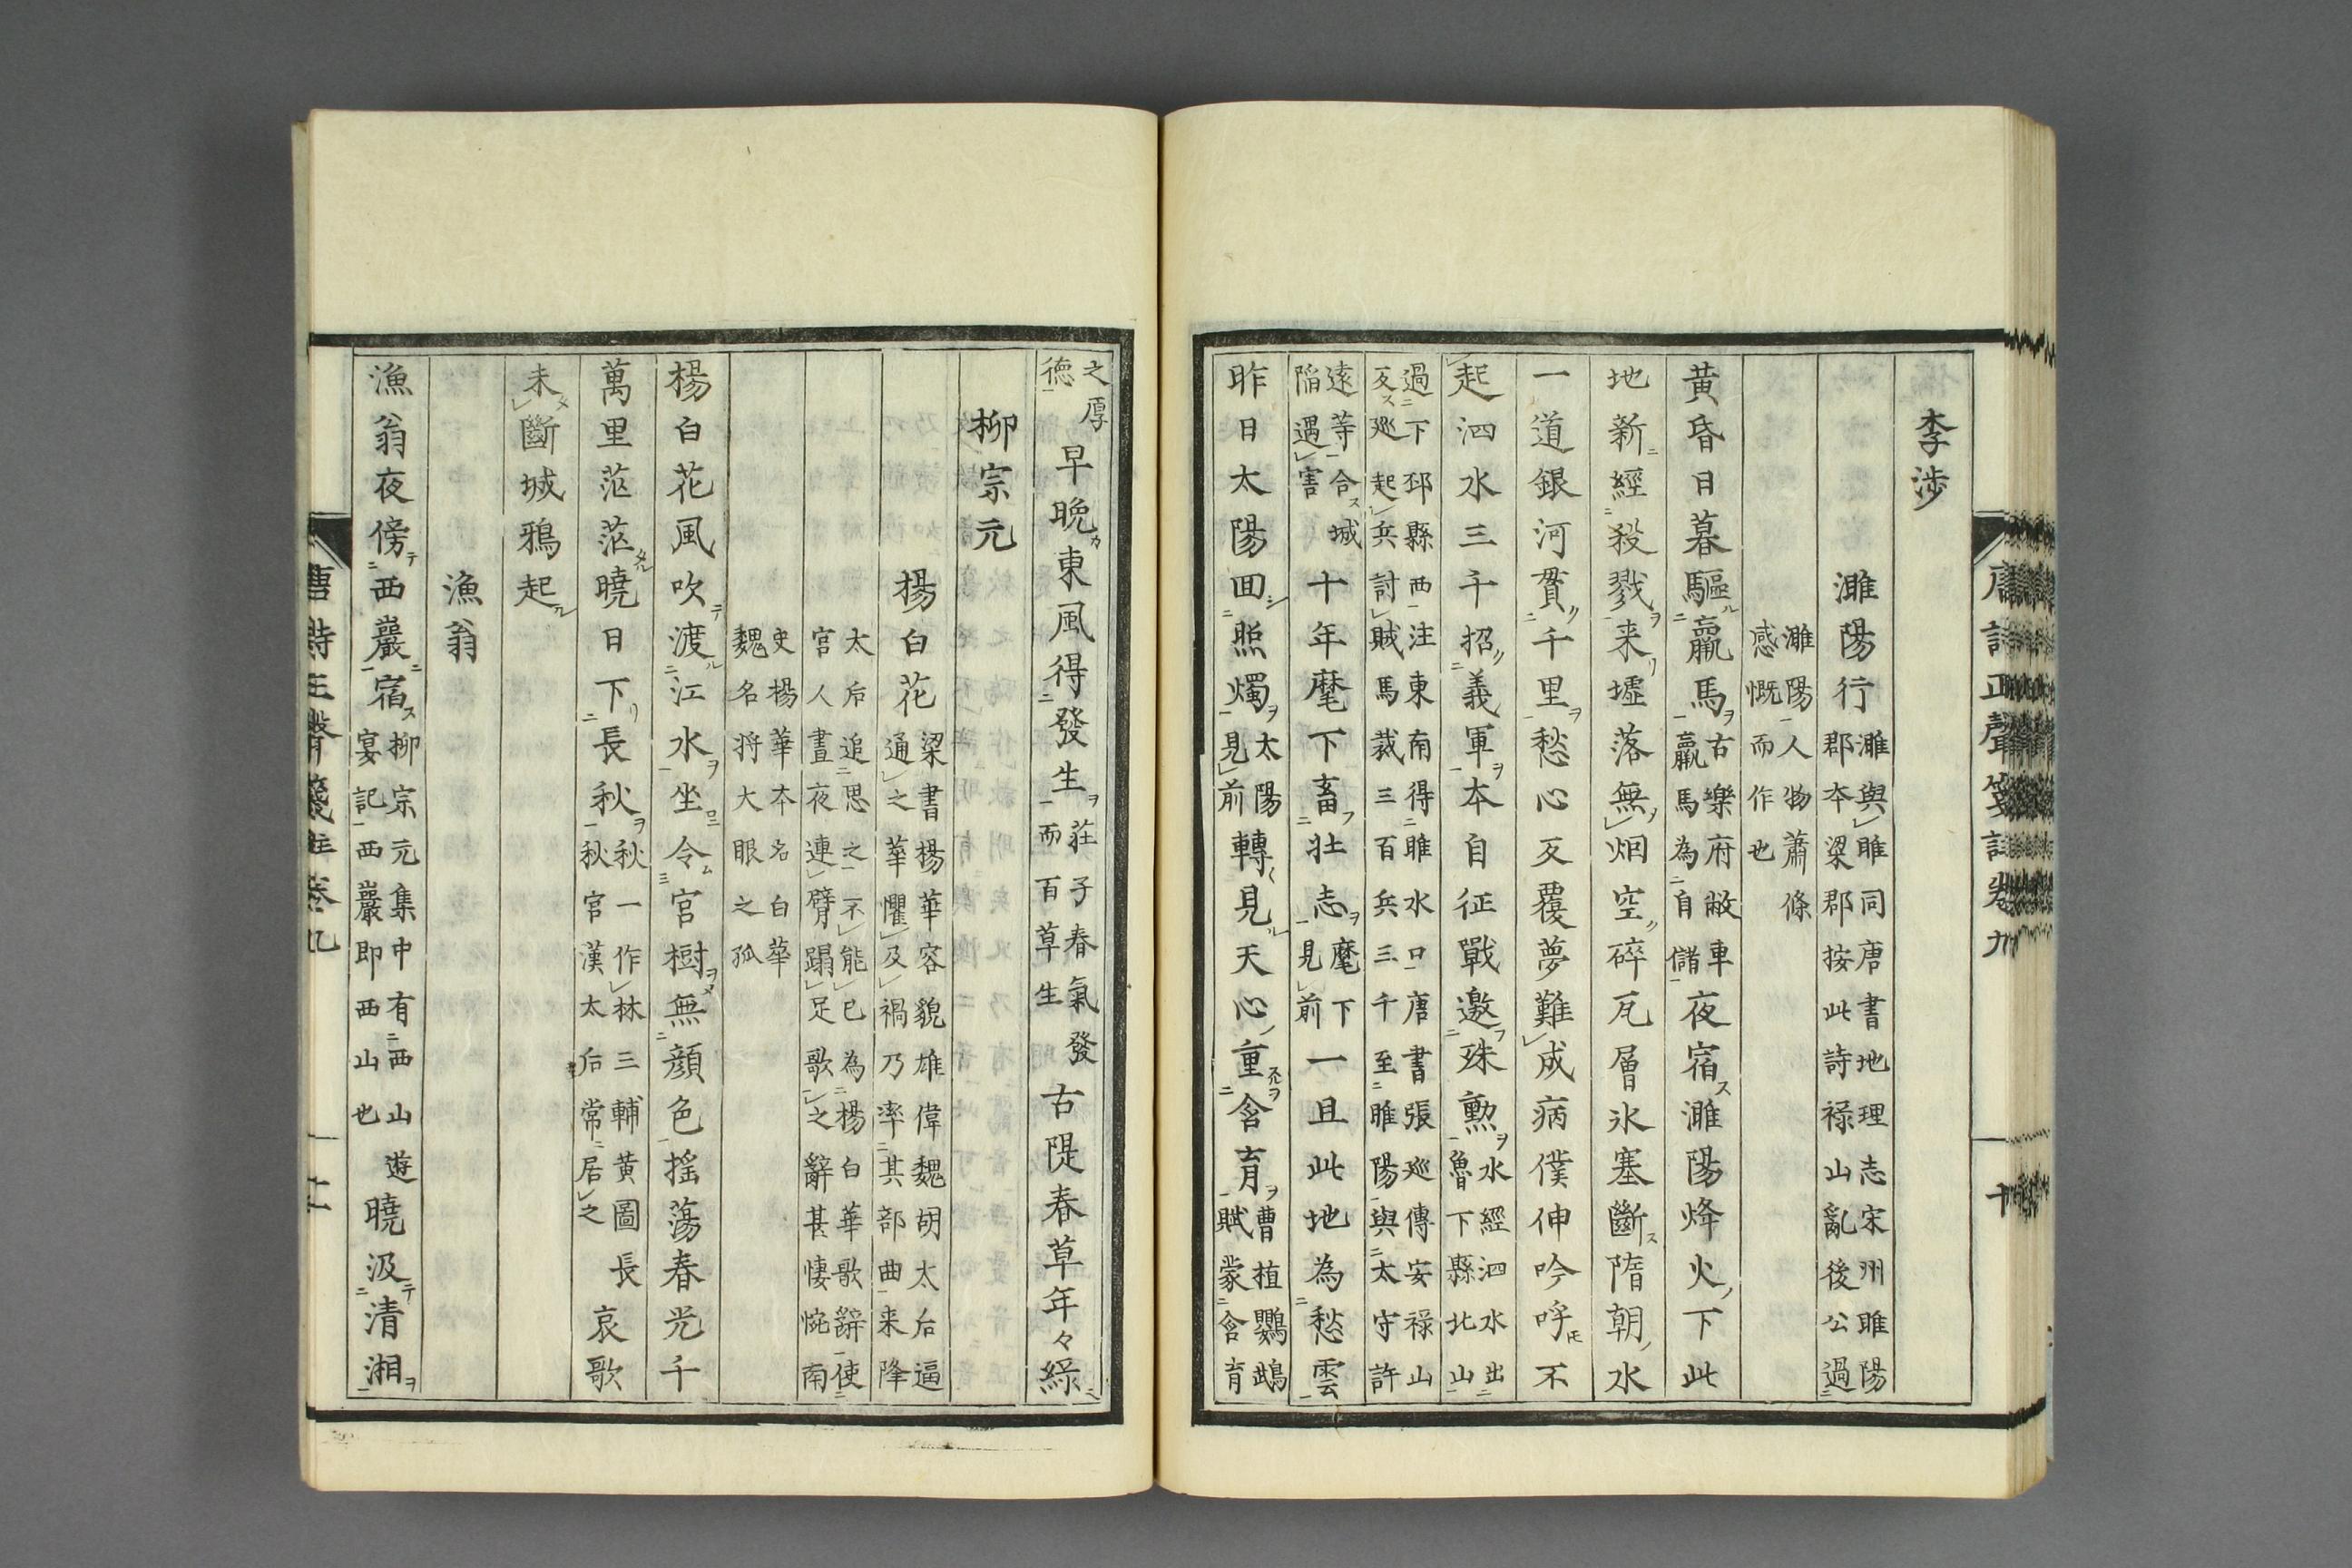 李渉
濉陽行 濉與睢同唐書地理志宋州睢陽
郡本梁郡按此詩禄山亂後公過
濉陽人物蕭條
感慨而作也
黄昏日暮驅羸馬 古樂府敝車
羸馬為自儲 夜宿濉陽烽火下此
地新經殺戮来墟落無烟空碎瓦層氷塞斷隋朝水
一道銀河貫千里愁心反覆夢難成病僕伸吟呼不
起泗水三千招義軍本自征戰邀殊勲 水經泗水出
魯下縣北山
過下邳縣西注東南得睢水口唐書張巡傳安禄山
反巡起兵討賊馬裁三百兵三千至睢陽與太守許
遠等合城
陥遇害 十年麾下畜壮志 麾下
見前 一旦此地為愁雲
昨日太陽回照燭 太陽
見前 轉見天心重含育 曹植鸚鵡
賦蒙含育
之厚
德 早晩東風得發生 莊子春氣發
而百草生 古隄春草年々綠
柳宗元
楊白花 梁書楊華容貌雄偉魏胡太后逼
通之華懼及禍乃率其部曲来降
太后追思之不能已為楊白華歌辭使
宮人晝夜連臂蹋足歌之辭甚悽惋南
史楊華本名白華
魏名将大眼之孤
楊白花風吹渡江水坐令宮樹無顔色揺蕩春光千
萬里茫茫曉日下長秋 秋一作林三輔黄圖長
秋官漢太后常居之 哀歌
未斷城鴉起
漁翁
漁翁夜傍西巖宿 柳宗元集中有西山遊
宴記西巖即西山也 曉汲清湘
唐詩正聲箋註卷九
十
唐詩正聲箋註卷九